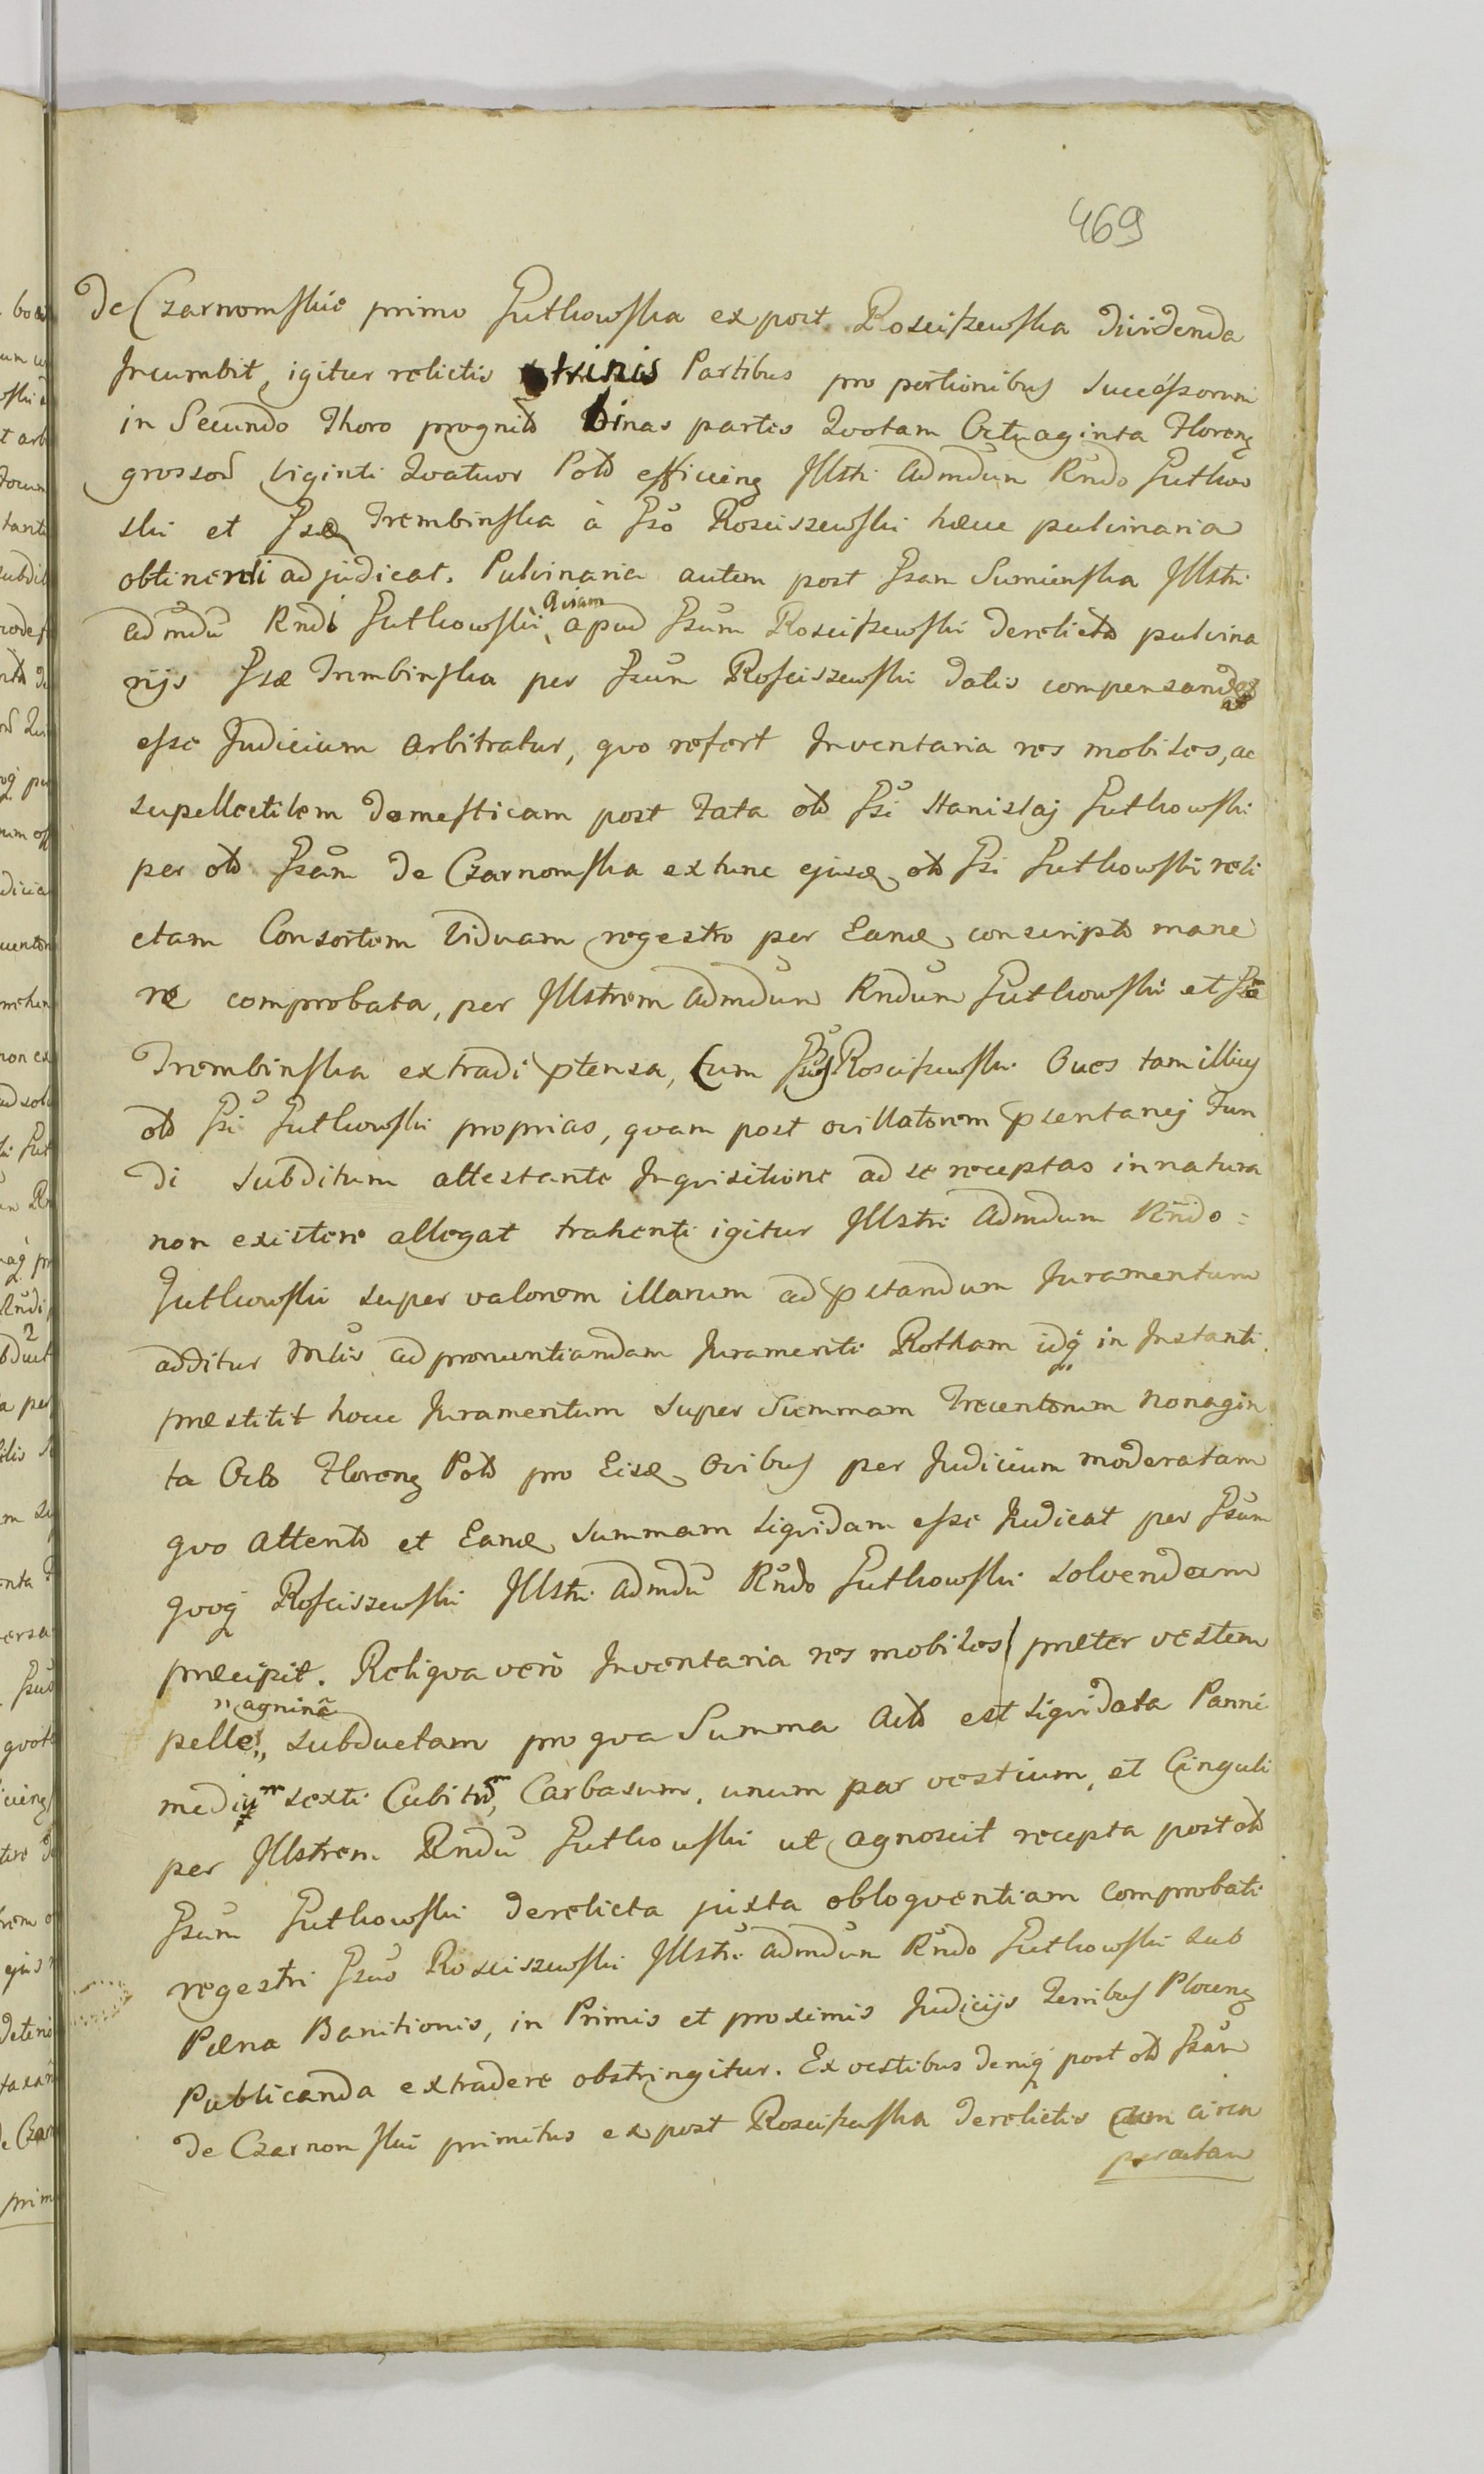 469
de Czarnomskie primo Gutkowska ex post Rosciszewska dividenda
Incumbit, igitur relictis trinis Partibus pro portionibus Successorum
in Secundo Thoro prognito binas partes Quotam Octuaginta Floreng
grossod Viginti Quatuor Pold efficieng Illstri admdum Rndo Gutkow
ski et Gsae Trembinska à Gso Rosciszewski haecce pulvinaria
obtinendi adjudicat. Pulvinaria autem post Gsam Sumienska Illstri
admdu Rndi Gutkowski Aviam apud Gsum Rosciszewski derelicto pulvina
rijs Gsae Trembinska per Gsum Rosciszewski datis compensandas
esse Judicium arbitratur, quo refert Inventaria res mobiles, ac
supellectilem domesticam post Fata old Gsi Stanislaj Gutkowski
per old Gsam de Czarnomska extunc ejusd old Gsi Gutkowski reli
ctam Consortem Viduam regestro per Eand conscripto mane
re comprobata, per Illstrem admdum Rndum Gutkowski et Gsa
Trembinska extradi ptensa, Cum Gsus Rosciszewski Oves tam illius
old Gsi Gutkowski proprias, quam post ovillatorem psentanej Fun
di subditum attestante Inquisitione ad se receptas in natura
non existere allegat trahenti igitur Illstri admdum Rndo =
Gutkowski super valorem illarum ad pstandum Juramentum
additur Mlis ad pronuntiandam Juramenti Rotham idq in Instanti
praestitit hocce Juramentum super Summam Trecentorum Nonagin
ta Octo Floreng Pold pro Eisd Ovibus per Judicium moderatam
quo attento et Eand summam liquidam esse Judicat per Gsum
quoq Rosciszewski Illstri admdu Rndo Gutkowski solvendam
praecipit. Reliqua verò Inventaria res mobiles praeter vestem
pelle agninâ subductam pro qua Summa Acto est liquidata Panni
medium sexti Cubitum, Carbasum, unum par vestium, et Cinguli
per Illstrem Rndu Gutkowski ut agnoscit recepta post old
Gsum Gutkowski derelicta juxta obloquentiam comprobati
regestri Gsus Rosciszewski Illstri admdum Rndo Gutkowski sub
Paena Banitionis, in Primis et proximis Judicijs Terribus Ploceng
Publicanda extradere obstringitur. Ex vestibus deniq post old Gsam
de Czarnomskie primitus ex post Rosciszewska derelictis cum circa
peractam